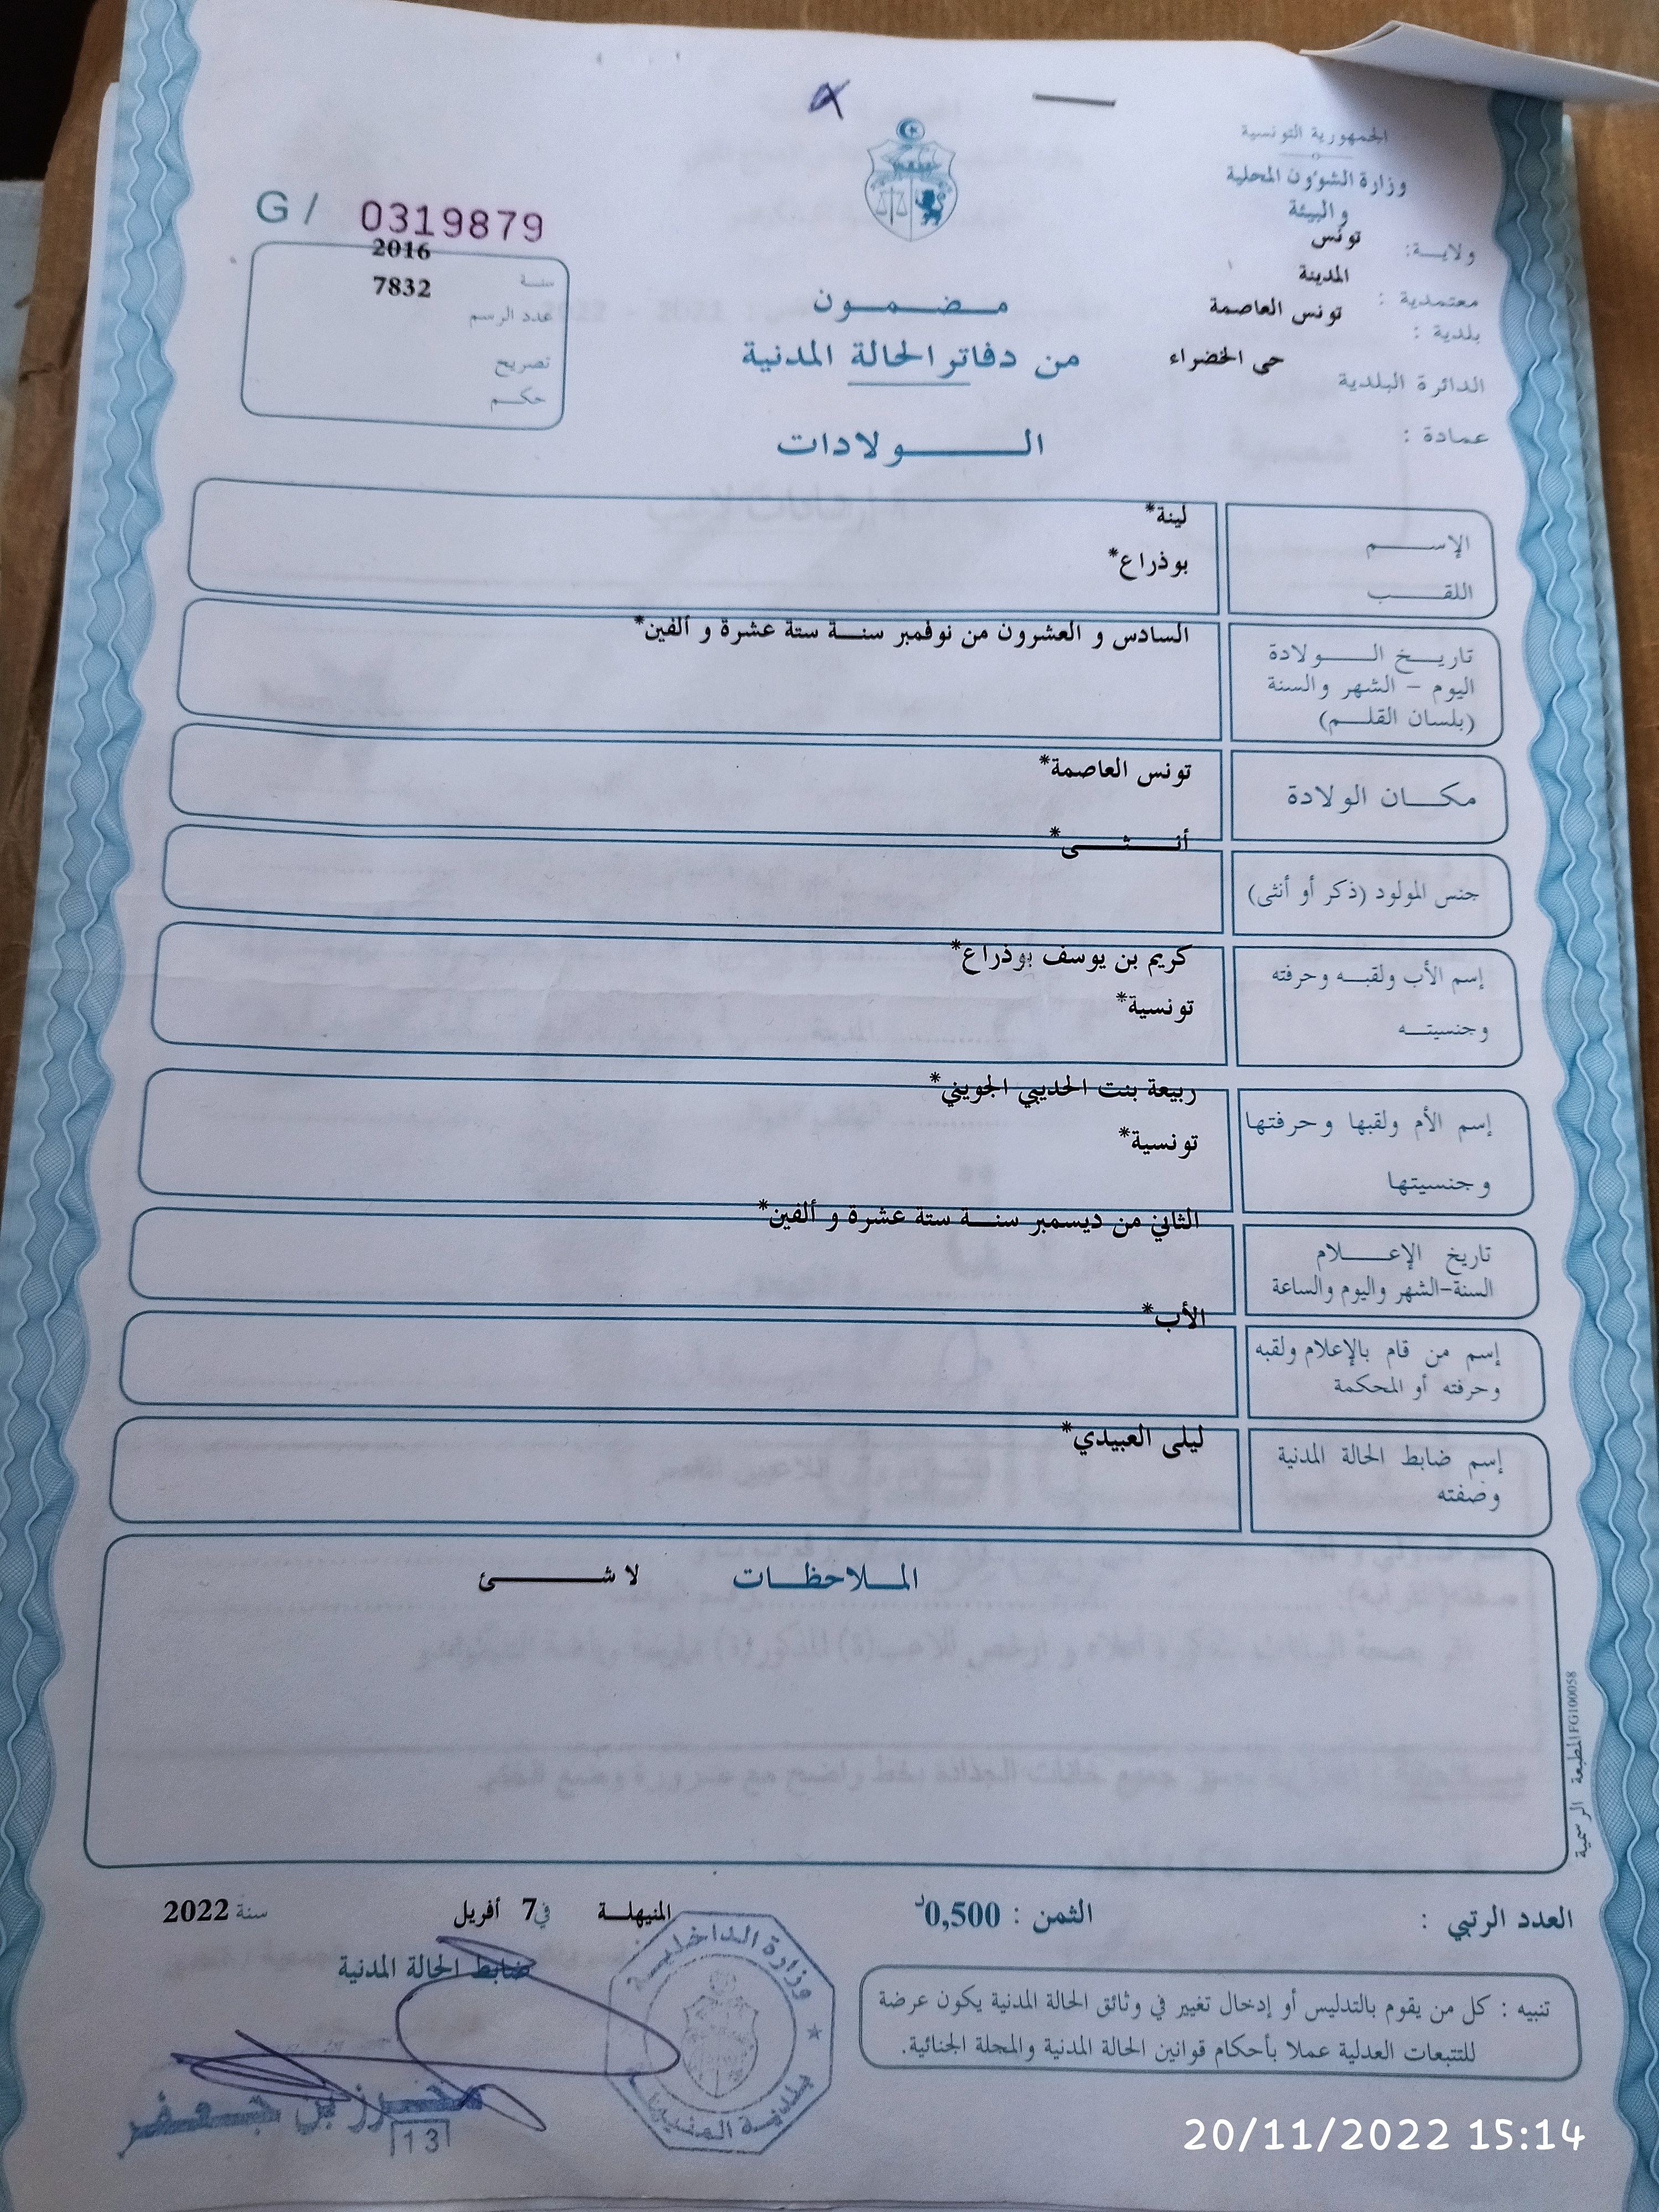 الجمهورية التونسية
وزارة الشؤون المحلية
والبيئة
ولايـــة: تونس
معتمدية : المدينة
بلدية : تونس العاصمة
الدائرة البلدية حي الخضراء
عمادة :
G / 0319879
سنـة 2016
عدد الرسم 7832
تصريح
حكـم
مـضـمـون
من دفاتر الحالة المدنية
الـولادات
الإســـم لينة*
اللقـــب بوذراع*
تاريـخ الـــولادة السادس و العشرون من نوفمبر سنـة ستة عشرة و ألفين*
اليوم – الشهر والسنة
(بلسان القلـم)
مكـــان الولادة تونس العاصمة*
جنس المولود (ذكر أو أنثى) أنـــثـــى*
إسم الأب ولقبـه وحرفته كريم بن يوسف بوذراع*
وجنسيتــه تونسية*
إسم الأم ولقبها وحرفتها ربيعة بنت الحديبي الجويني*
وجنسيتها تونسية*
تاريخ الإعـــلام الثاني من ديسمبر سنـة ستة عشرة و ألفين*
السنة-الشهر واليوم والساعة
إسم من قام بالإعلام ولقبه الأب*
وحرفته أو المحكمة
إسم ضابط الحالة المدنية ليلى العبيدي*
وصفته
المـلاحظـات لا شـــئ
المطبعة الرسمية FG100058
العدد الرتبي : الثمن : 0,500د
المنيهلـة في 7 أفريل سنة 2022
ضابط الحالة المدنية
تنبيه : كل من يقوم بالتدليس أو إدخال تغيير في وثائق الحالة المدنية يكون عرضة
للتتبعات العدلية عملا بأحكام قوانين الحالة المدنية والمجلة الجنائية.
وزارة الداخليـة
بلدية المنيهلة
محـرز بن جـعـفـر
13
20/11/2022 15:14